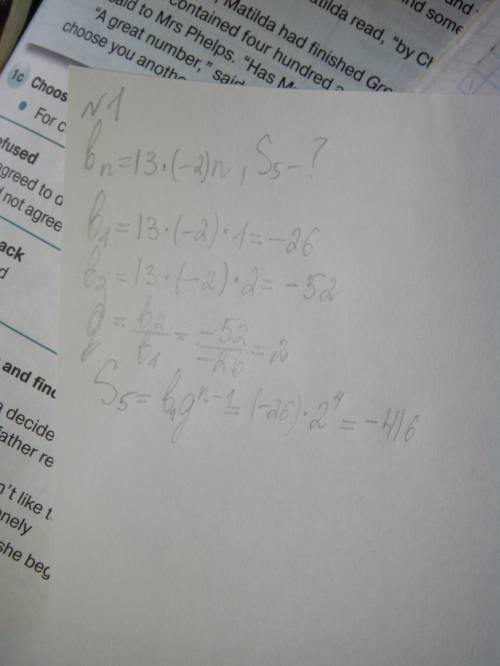 , Matilda had finished Gre
atilda read, "by Ch
said to Mrs Phelps. "Has M
contained four hundred a
and some
"A great number," said
choose you anothe
1c Choos
• For c
efused
agreed to d
d not agree
ack
d
and find
a decide
father re
n't like t
onely
she beg
N1
bn=13·(-2)n, S5-?
b1=13·(-2)·1=-26
b2=13·(-2)·2=-52
q=b2/b1=-52/-26=2
S5=b1q^n-1=(-26)·2^4=-416